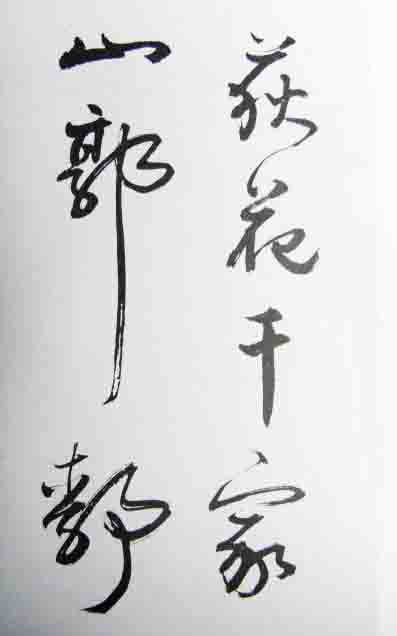 荻花千家
山郭静